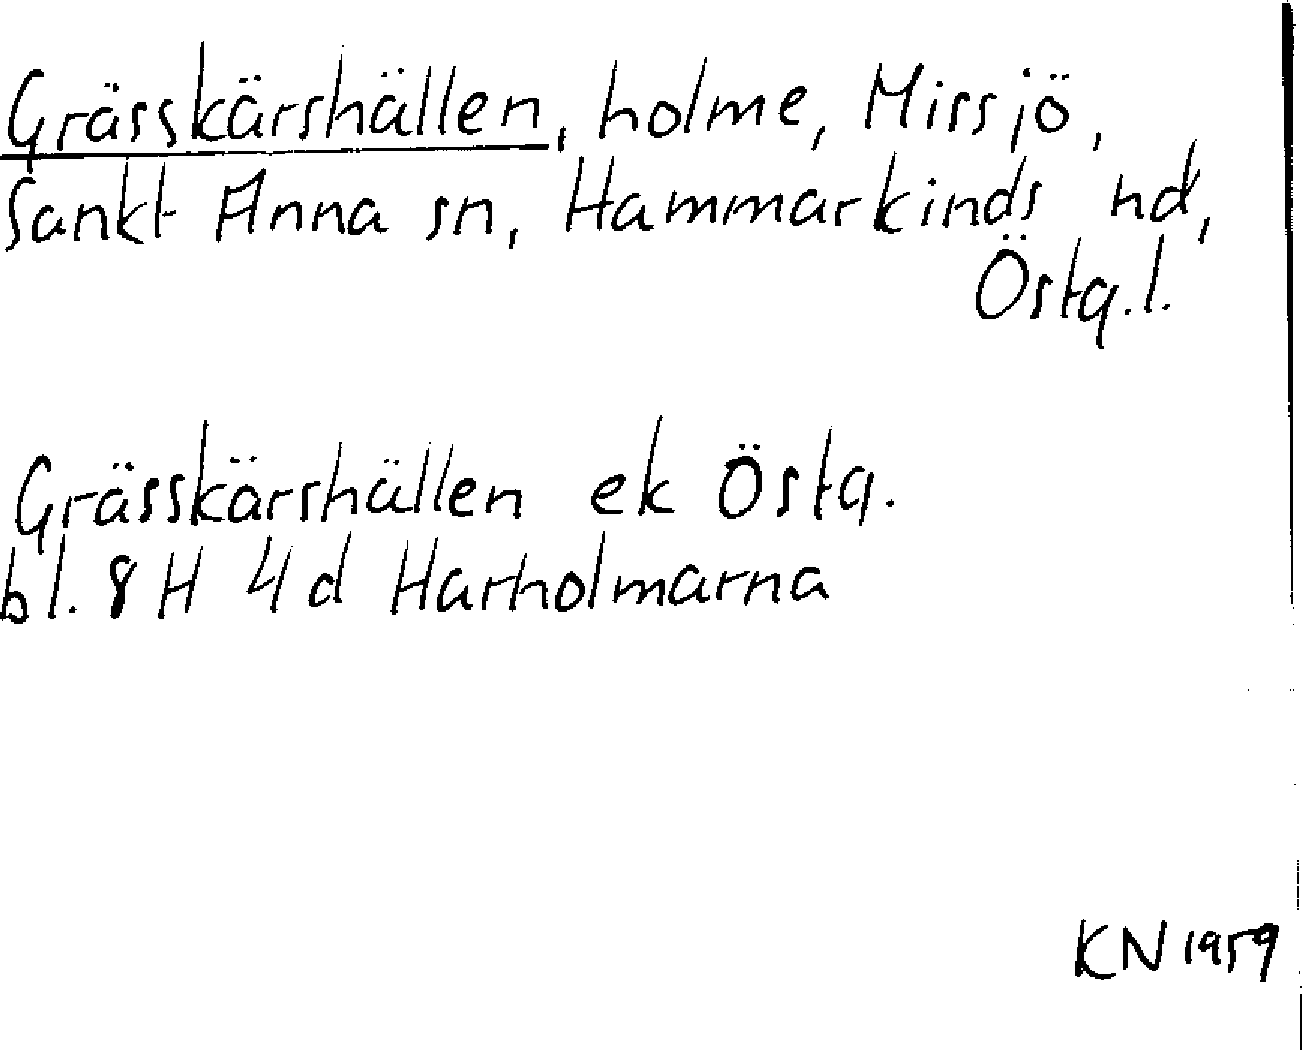 Grässkärshällen, holme, Missjö,
Sankt Anna sn, Hammarkinds hd,
Östg.l.
Grässkärshällen ek Östg.
bl. 8 H 4 d Harholmarna
KN 1959